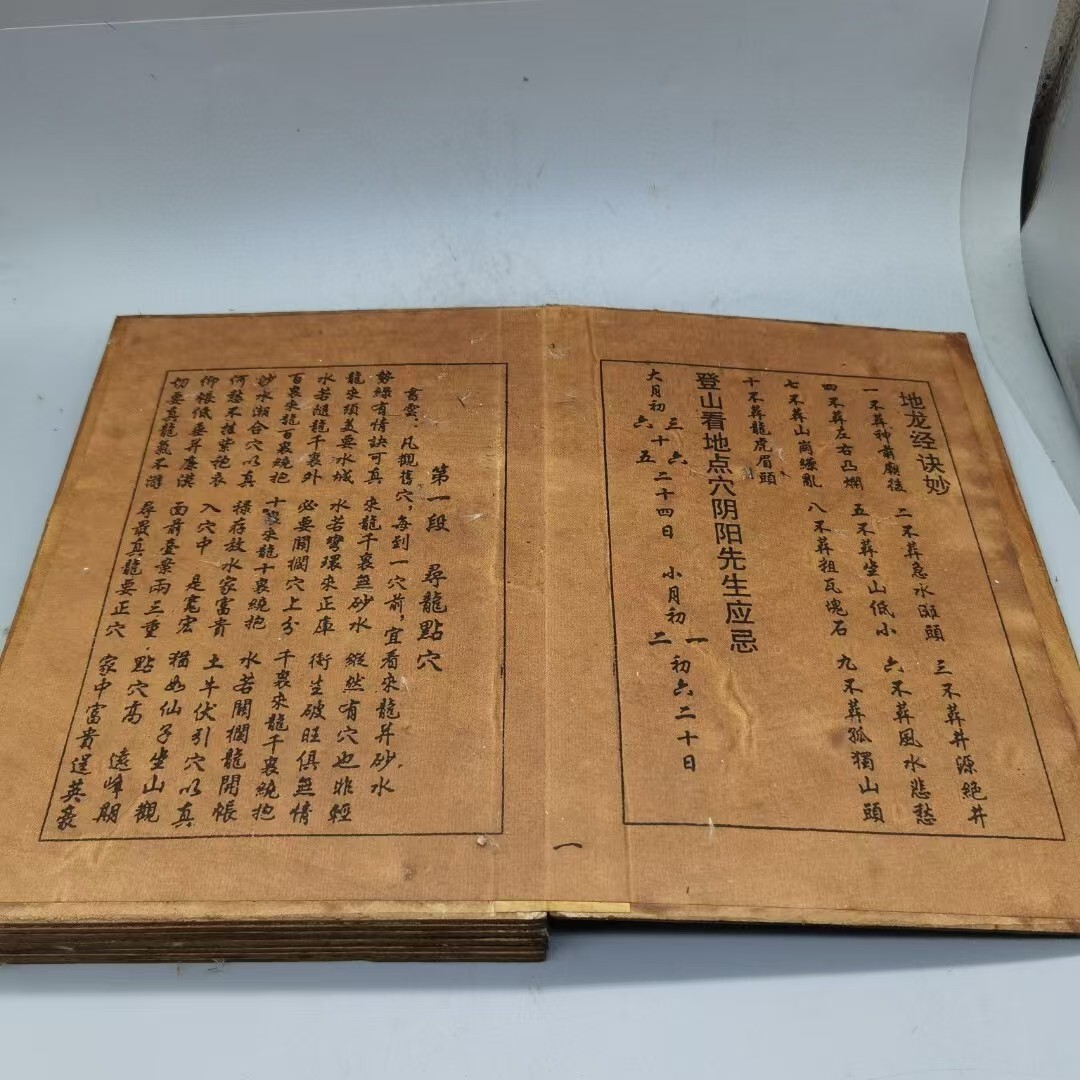 地龙经诀妙
一不葬神前廟後 二不葬急水灘頭 三不葬井源絕井
四不葬左右凸爛 五不葬坐山低小 六不葬風水悲愁
七不葬山崗繚亂 八不葬粗瓦塊石 九不葬孤獨山頭
十不葬龍虎眉頭
登山看地点穴阴阳先生应忌
大月初 三十六
六五 二十四日 小月初 一
二 初六二十日
一
第一段 尋龍點穴
書雲：凡觀舊穴，每到一穴前，宜看來龍并砂水
勢緣有情訣可真 來龍千裏無砂水 縱然有穴也非輕
龍來須美要水城 水若彎環來正庫 衝生破旺俱無情
水若隨龍千裏外 必要開攔穴上分 千裏來龍千裏繞抱
百裏來龍百裏繞抱 十裏來龍十裏繞抱 水若開攔龍開帳
砂水瀨合穴以真 祿存放水家富貴 土牛伏引穴以真
何愁不挂紫袍衣 入穴中 是寬宏 猶如仙子坐山觀
低垂并廉 面前臺案兩三重 點穴高 遠峰朋
切要真龍氣不游 尋最真龍要正穴 家中富貴逞英豪